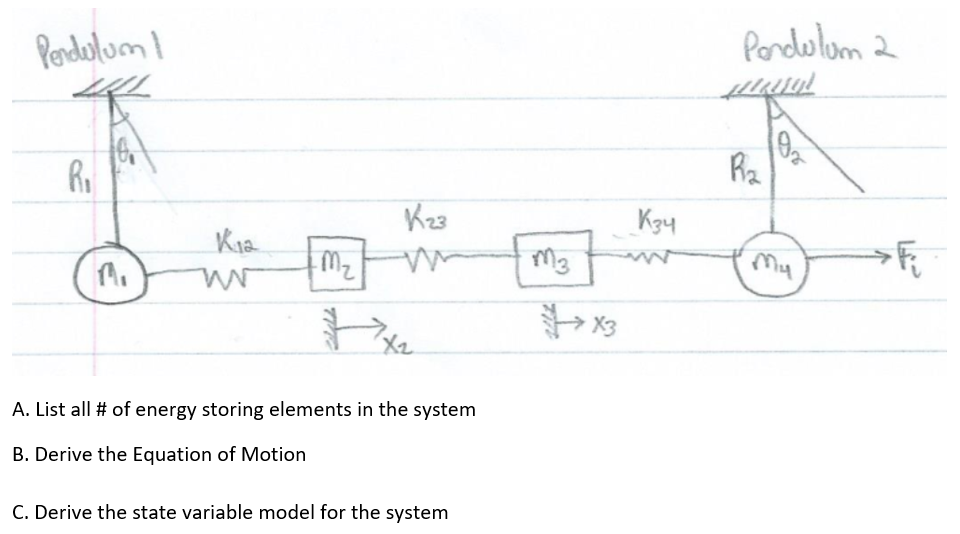 Pendulum 1
Pendulum 2
θ₁
θ₂
R₁
R₂
K₁₂
K₂₃
K₃₄
M₁
M₂
M₃
M₄
Fᵢ
X₂
X₃
A. List all # of energy storing elements in the system
B. Derive the Equation of Motion
C. Derive the state variable model for the system